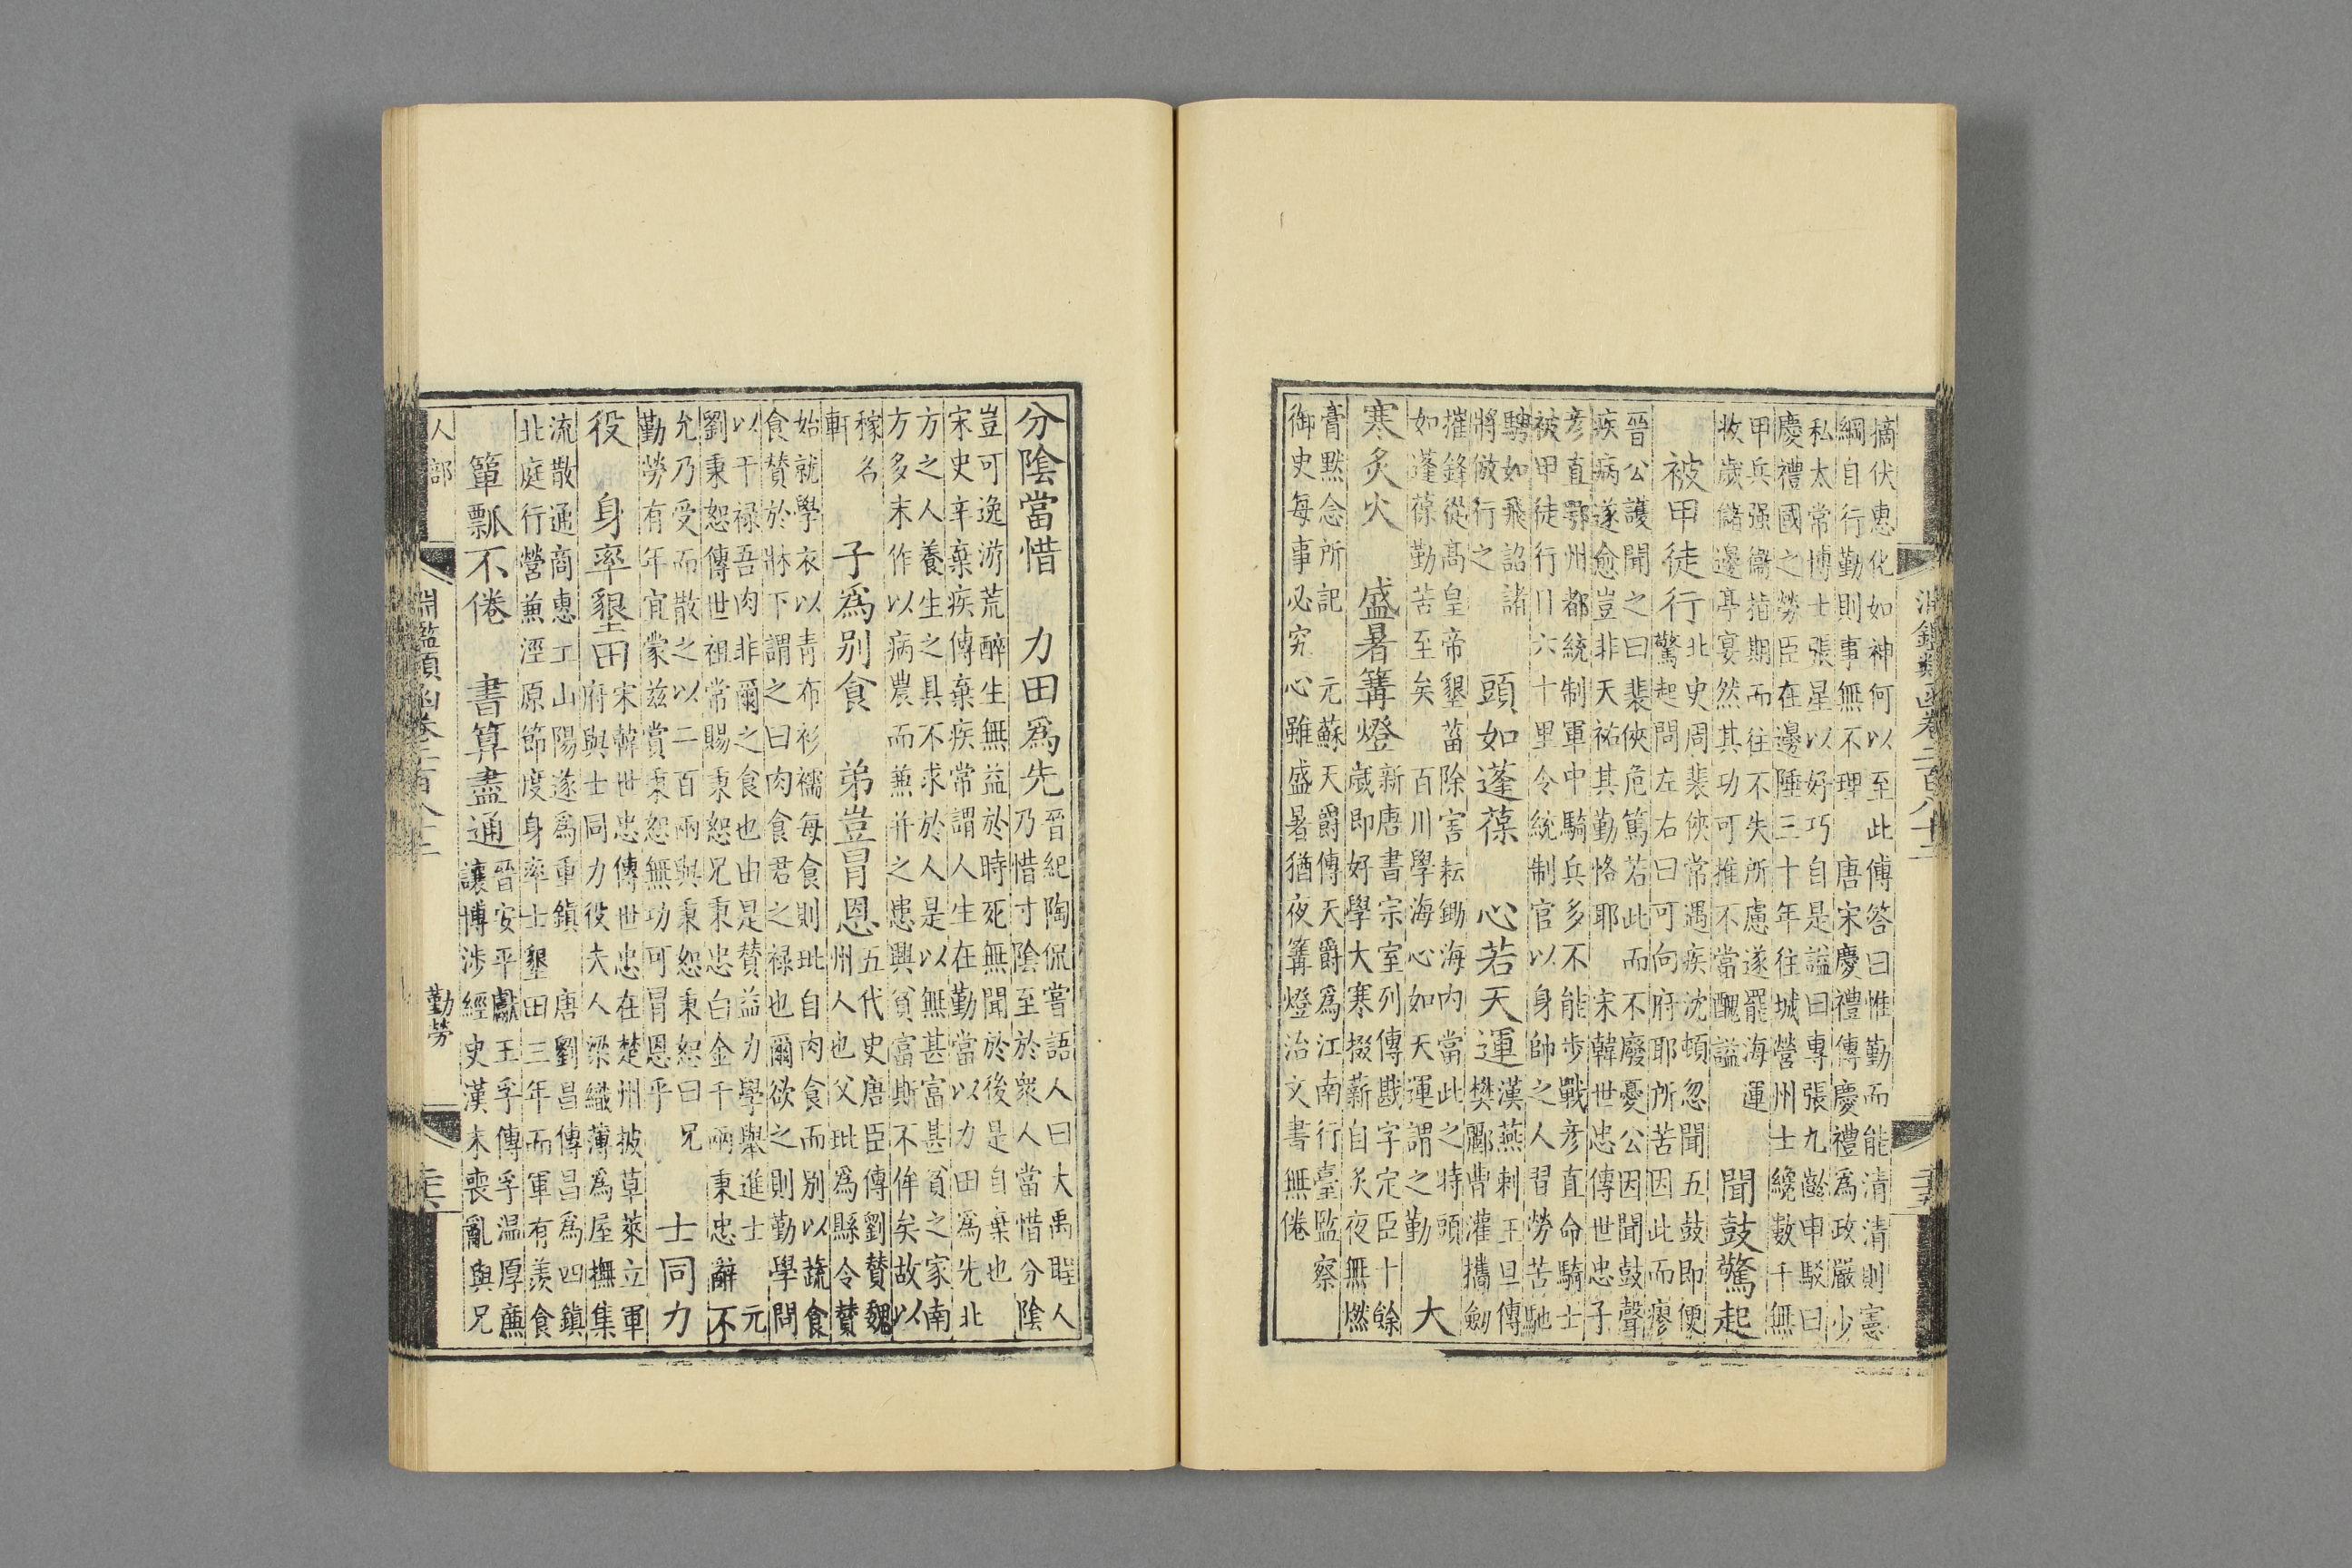 淵鑑類函卷二百八十二　三十五
摘伏惠化如神何以至此傳答曰惟勤而能清清則憲
綱自行勤則事無不理　唐宋慶禮傳慶禮為政嚴少
私太常博士張星以好巧自是謚曰專張九齡申駁曰
慶禮國之勞臣在邊陲三十年往城營州士纔數千無
甲兵强衞指期而往不失所慮遂罷海運
收歲儲邊亭宴然其功可推不當醜謚
聞鼓驚起
被甲徒行
北史周裴俠常遇疾沈頓忽聞五鼓即便
驚起問左右曰可向府耶所苦因此而瘳
晉公護聞之曰裴俠危篤若此而不廢憂公因聞鼓聲
疾病遂愈豈非天祐其勤恪耶　宋韓世忠傳世忠子
彦直鄂州都統制軍中騎兵多不能步戰彦直命騎士
被甲徒行日六十里令統制官以身帥之人習勞苦馳
騁如飛詔諸
將倣行之
頭如蓬葆　心若天運
漢燕剌王旦傳
樊酈曹灌攜劒
摧鋒從高皇帝墾菑除害耘鋤海内當此之特頭
如蓬葆勤苦至矣　百川學海心如天運謂之勤
大
寒炙火　盛暑篝燈
新唐書宗室列傳戡字定臣十餘
歲即好學大寒掇薪自炙夜無燃
膏默念所記　元蘇天爵傳天爵為江南行臺監察
御史每事必究心雖盛暑猶夜篝燈治文書無倦
分陰當惜　力田為先
晉紀陶侃嘗語人曰大禹聖人
乃惜寸陰至於衆人當惜分陰
豈可逸游荒醉生無益於時死無聞於後是自棄也
宋史辛棄疾傳棄疾常謂人生在勤當以力田為先北
方之人養生之具不求於人是以無甚富甚貧之家南
方多末作以病農而兼并之患興貧富斯不侔矣故以
稼名
軒
子為别食　弟豈冒恩
五代史唐臣傳劉贊魏
州人也父玭為縣令贊
始就學衣以青布衫襦每食則玭自肉食而别以蔬食
食贊於牀下謂之曰肉食君之禄也爾欲之則勤學問
以干禄吾肉非爾之食也由是贊益力學舉進士　元
劉秉恕傳世祖常賜秉恕兄秉忠白金千兩秉忠辭不
允乃受而散之以二百兩與秉恕秉恕曰兄
勤勞有年宜蒙兹賞秉恕無功可冒恩乎
士同力
役　身率墾田
宋韓世忠傳世忠在楚州披草萊立軍
府與士同力役夫人梁織薄為屋撫集
流散通商惠工山陽遂為重鎮　唐劉昌傳昌為四鎮
北庭行營兼涇原節度身率士墾田三年而軍有羡食
簞瓢不倦　書算盡通
晉安平獻王孚傳孚温厚廉
讓博涉經史漢末喪亂與兄
人部　淵鑑類函卷二百八十二　勤勞　三十六